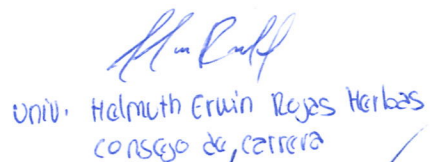 Univ. Helmuth Erwin Rojas Herbas
consejo de carrera